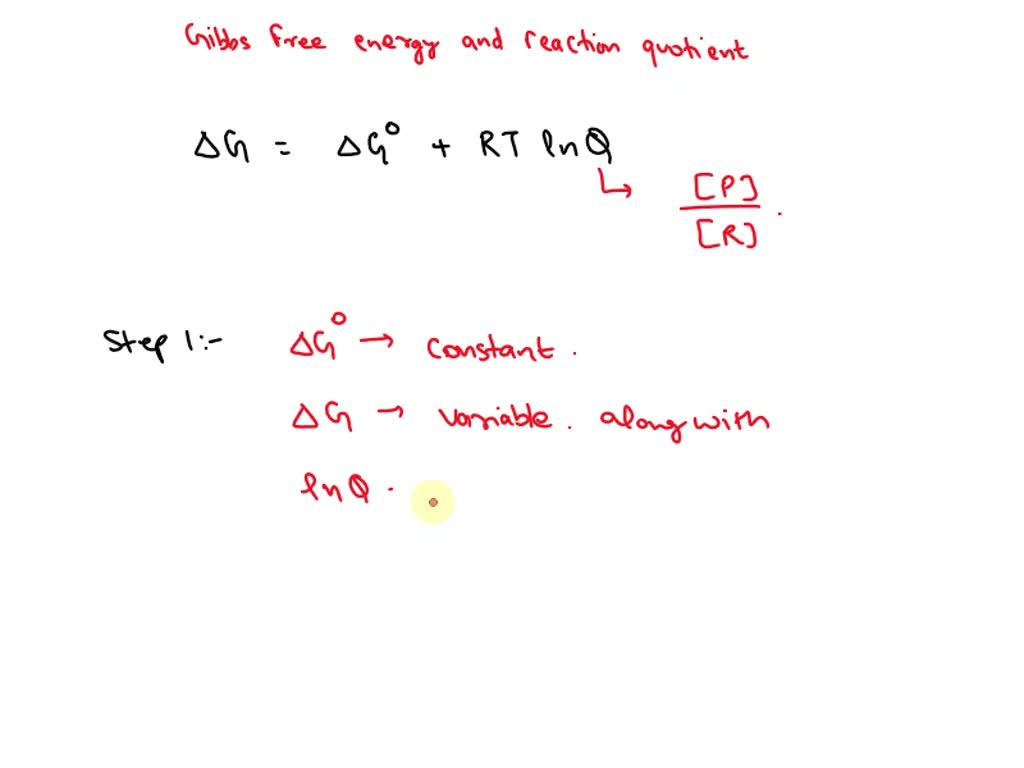 Gibbs free energy and reaction quotient
ΔG = ΔG° + RT ln Q
↳ [P]
[R] .
Step 1:- ΔG° → constant .
ΔG → variable . along with
ln Q .